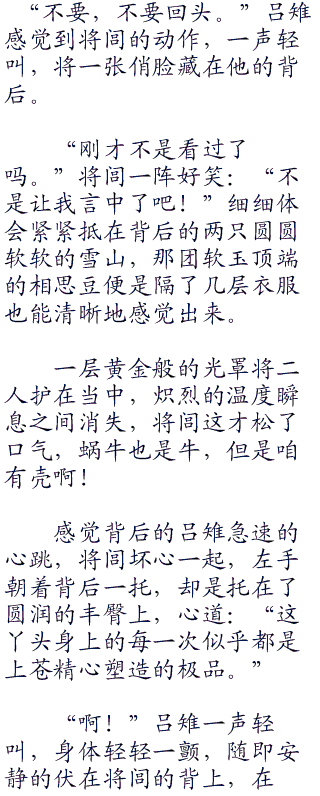 “不要，不要回头。”吕雉
感觉到将闾的动作，一声轻
叫，将一张俏脸藏在他的背
后。
“刚才不是看过了
吗。”将闾一阵好笑：“不
是让我言中了吧！”细细体
会紧紧抵在背后的两只圆圆
软软的雪山，那团软玉顶端
的相思豆便是隔了几层衣服
也能清晰地感觉出来。
一层黄金般的光罩将二
人护在当中，炽烈的温度瞬
息之间消失，将闾这才松了
口气，蜗牛也是牛，但是咱
有壳啊！
感觉背后的吕雉急速的
心跳，将闾坏心一起，左手
朝着背后一托，却是托在了
圆润的丰臀上，心道：“这
丫头身上的每一次似乎都是
上苍精心塑造的极品。”
“啊！”吕雉一声轻
叫，身体轻轻一颤，随即安
静的伏在将闾的背上，在